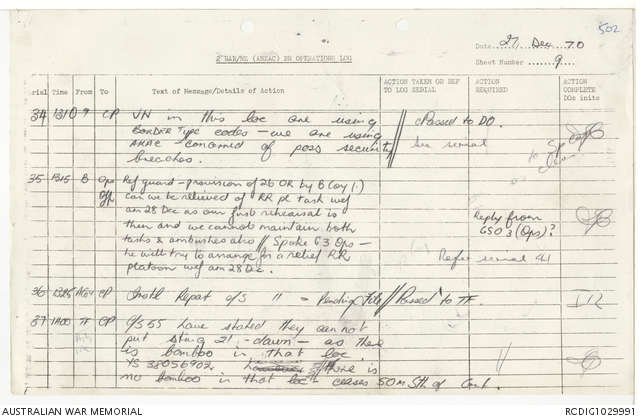 502
2 RAR/NZ (ANZAC) BN OPERATIONS LOG
Date 27 Dec 70
Sheet Number 9
Serial Time From To Text of Message/Details of Action ACTION TAKEN OR REF TO LOG SERIAL ACTION REQUIRED ACTION COMPLETE DOcs inits
34 1310 9 CP VN in this loc are using // Passed to DO.
BORDER type codes - we are using See serial
ANAC concerned of poss security
breaches.
35 1315 B Ops Ref guard - provision of 26 OR by B Coy (.)
Off can we be relieved of RR pl task wef
am 28 Dec as our first rehearsal is
then and we cannot maintain both Reply from
tasks & ambushes also // Spoke G3 Ops - GSO 3 (Ops)?
he will try to arrange for a relief RR Refer serial 41
platoon wef am 28 Dec.
36 CP Instl Repat " = Pending // Passed to TF.
37 1400 TF CP C/S 55 have stated they cannot
put 21 - dawn - as there
is bamboo in that loc.
YS 38056902. there is
no bamboo in that loc - ceases 50m Sth of
AUSTRALIAN WAR MEMORIAL
RCDIG1029991